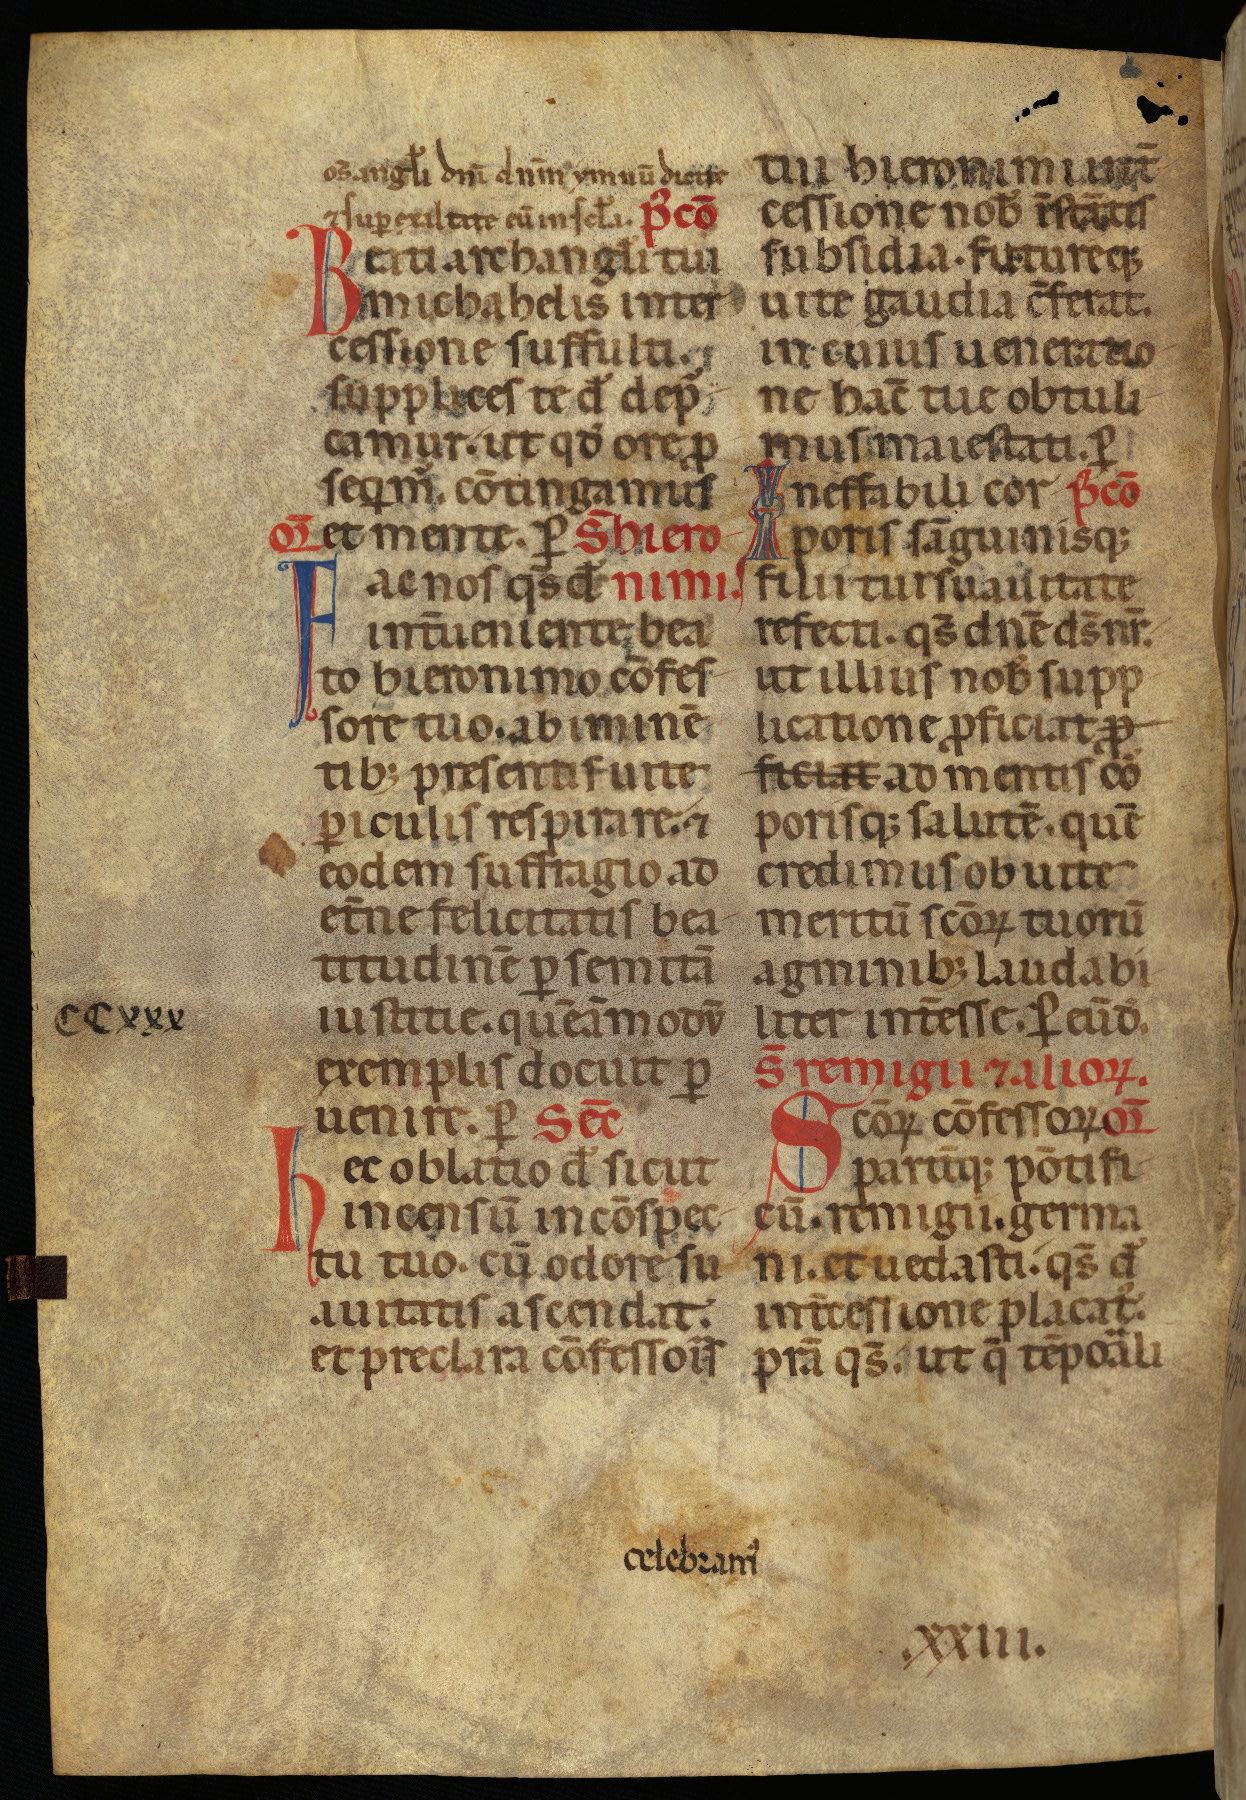 om̄s angł'i dn̄i dn̄m ymnū dicite
⁊ suꝑexaltate eū in scł'a. P̄cō
Beati archangł'i tui
michahelis inter
cessione suffulti.
supplices te d̄s dep̄
camur. ut qd̓ ore ꝓ
seq̄m᷒. cōtingamus
et mente. ꝑ S̄ hiero
Or̄ nimi.
Fac nos qs̄ ds̄
int̄ueniente bea
to hieronimo cōfes
sore tuo. ab iminē
tib; presentis uite
ꝑiculis respirare. ⁊
eodem suffragio ad
et̄ne felicitatis bea
titudinē ꝑ semitā
iustitie. quēāmodū
exemplis docuit ꝑ
uenire. ꝑ Sec̄
Hec oblatio ds̄ sicut
incensū in cōspec
tu tuo. cū odore su
auitatis ascendat.
et preclara cōfessoris
tui hieronimi int̄
cessione nob̄ īstātis
subsidia. futureq;
uite gaudia c̄ferat.
in cuius ueneratio
ne hāc tue obtuli
mus maiestati. ꝑ
Ineffabili cor P̄cō
poris sāguinisq;
filii tui suauitate
refecti. qs̄ dn̄e ds̄ nr̄.
ut illius nob̄ supp
licatione ꝓficiat ꝓ
ficiat ad mentis co᷒
porisq; salutē. quē
credimus ob uite
meritū scōꝝ tuorū
agminib; laudabi
liter int̄esse. ꝑ eūd̄.
S̄ remigii ⁊ alioꝝ.
Scōꝝ cōfessoꝝ Or̄
pariūq; pōtifi
cū. remigii. germa
ni. et uedasti. qs̄ ds̄
int̄cessione placat᷒.
prā qs̄. ut q̄ tēporali
CCxxx
celebram᷒
.xxiii.